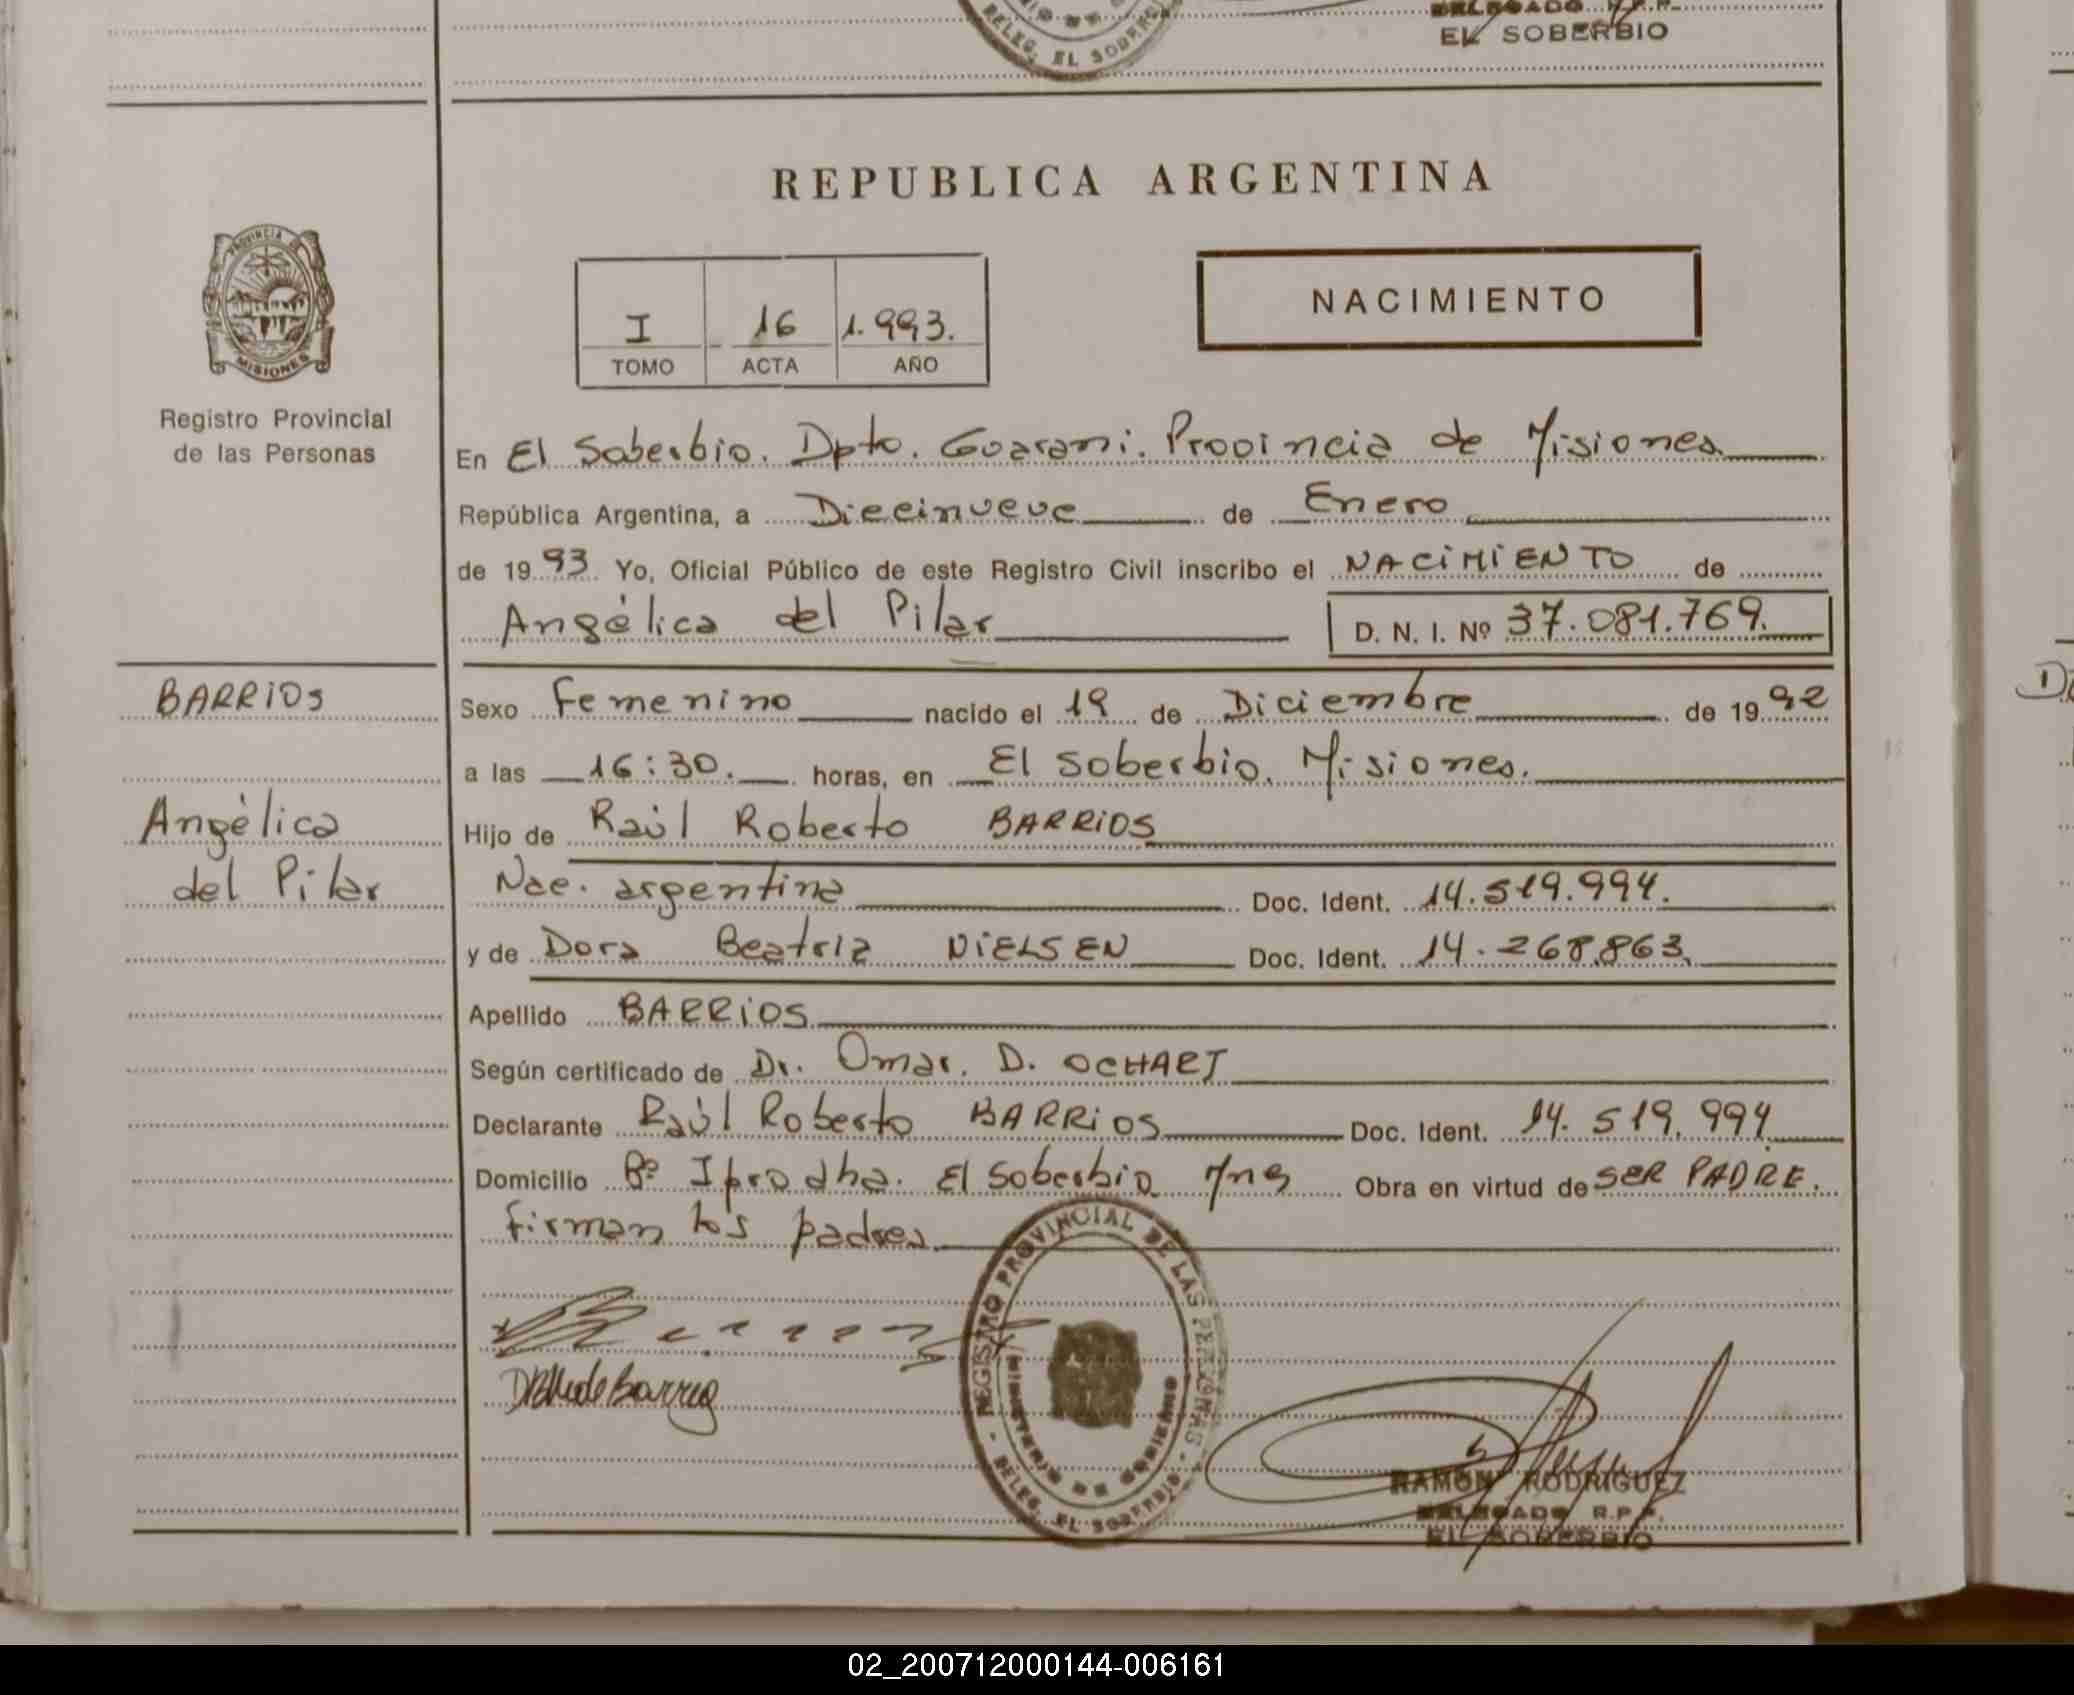 DELEGADO R.P.P.
EL SOBERBIO
DELEG. EL SOBERBIO
REPUBLICA ARGENTINA
PROVINCIA DE
MISIONES
Registro Provincial
de las Personas
I 16 1.993.
TOMO ACTA AÑO
NACIMIENTO
En El Soberbio. Dpto. Guarani. Provincia de Misiones
República Argentina, a Diecinueve de Enero
de 1993 Yo, Oficial Público de este Registro Civil inscribo el NACIMIENTO de
Angélica del Pilar D. N. I. Nº 37.081.769.
BARRIOS
Angélica
del Pilar
Sexo Femenino nacido el 19 de Diciembre de 1992
a las 16:30. horas, en El Soberbio. Misiones.
Hijo de Raúl Roberto BARRIOS
Nac. argentina Doc. Ident. 14.519.994.
y de Dora Beatriz NIELSEN Doc. Ident. 14.268.863.
Apellido BARRIOS
Según certificado de Dr. Omar. D. OCHAET
Declarante Raúl Roberto BARRIOS Doc. Ident. 14.519.994
Domicilio Bº Iprodha. El Soberbio Mns Obra en virtud de SER PADRE.
firman los padres
REGISTRO PROVINCIAL DE LAS PERSONAS
MINISTERIO DE GOBIERNO
DELEG. EL SOBERBIO
RAMON RODRIGUEZ
DELEGADO R.P.P.
EL SOBERBIO
02_200712000144-006161